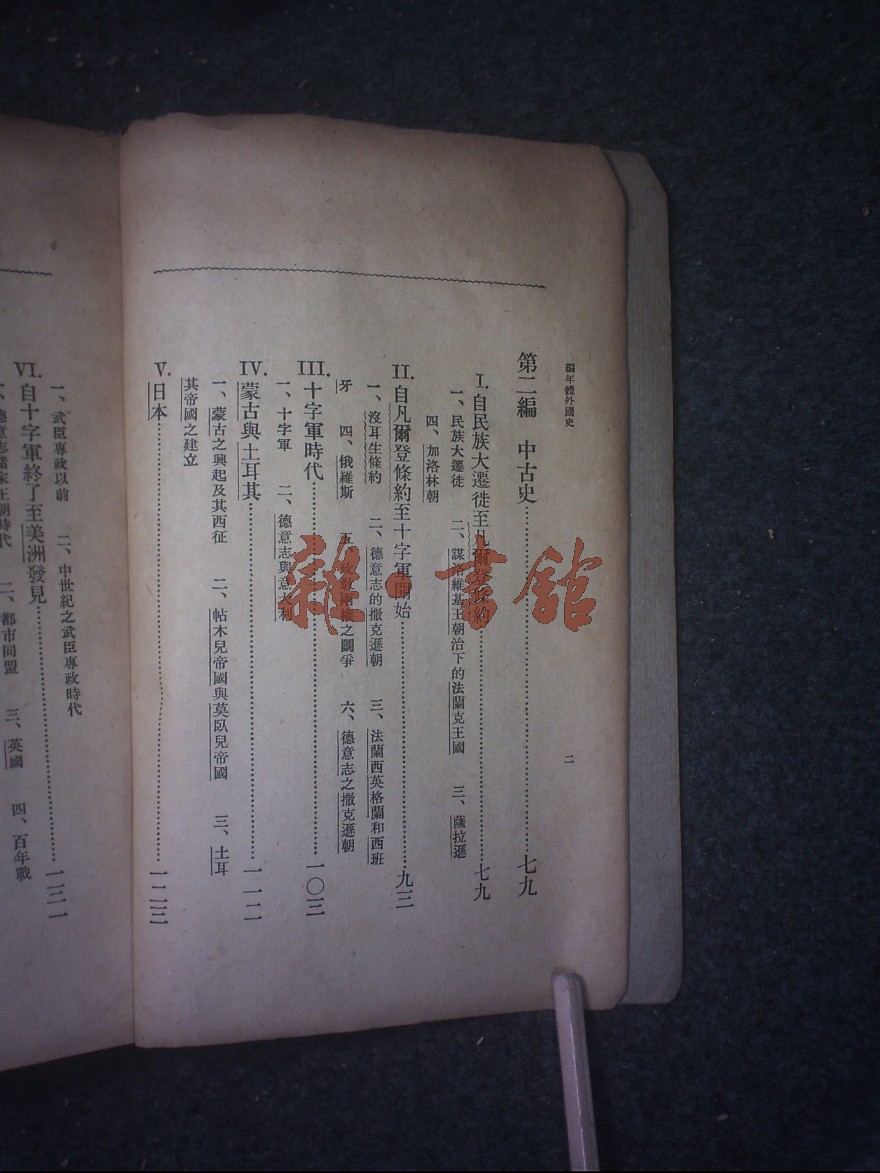 編年體外國史
二
第二編　中古史……七九
I. 自民族大遷徙至凡爾登條約……七九
一、民族大遷徙　二、謀洛維基王朝治下的法蘭克王國　三、薩拉遜
四、加洛林朝
II. 自凡爾登條約至十字軍開始……九三
一、沒耳生條約　二、德意志的撒克遜朝　三、法蘭西英格蘭和西班
牙　四、俄羅斯　五、政教兩權之鬬爭　六、德意志之撒克遜朝
III. 十字軍時代……一〇三
一、十字軍　二、德意志與意大利
IV. 蒙古與土耳其……一一二
一、蒙古之興起及其西征　二、帖木兒帝國與莫臥兒帝國　三、土耳
其帝國之建立
V. 日本……一二三
一、武臣專政以前　二、中世紀之武臣專政時代
VI. 自十字軍終了至美洲發見……一三一
一、德意志諸家王朝時代　二、都市同盟　三、英國　四、百年戰
雜·書館